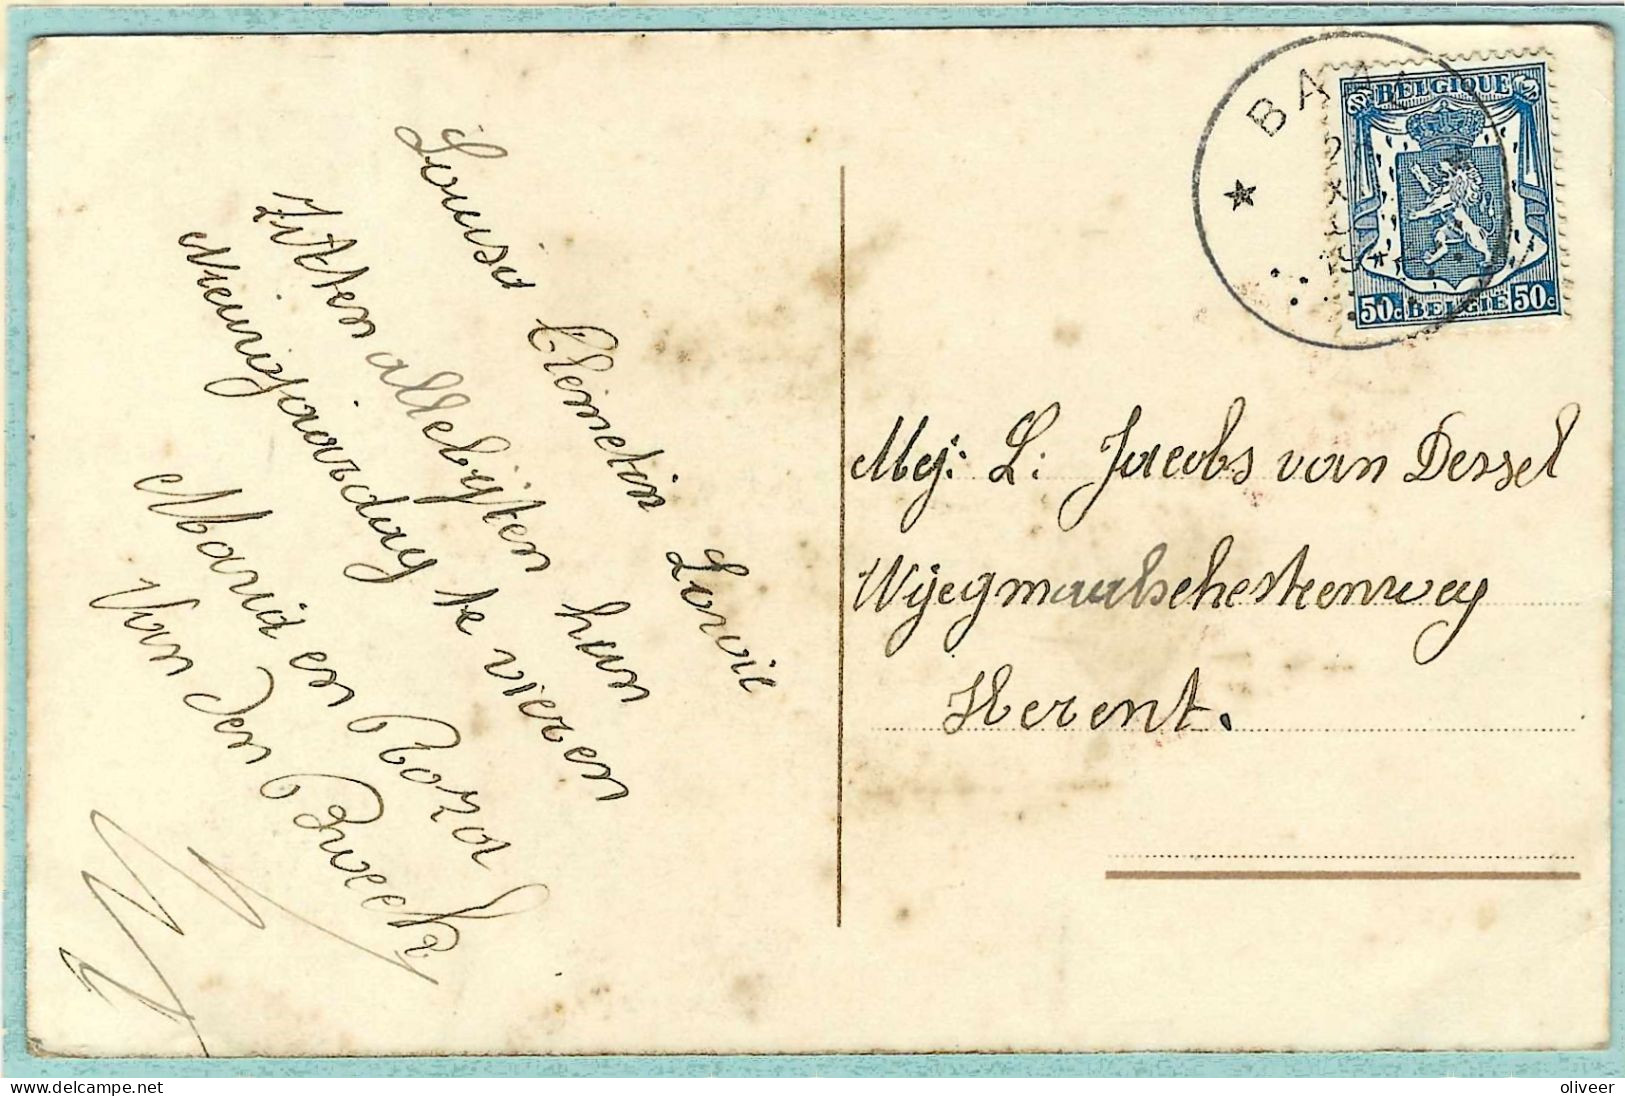 Louisa Clemetin Lowie
zitten allebijten hun
Nieuwjaardag te vieren
Maria en Roza
Van den Broeck
BELGIQUE
50c BELGIË 50c
Mej: L: Jacobs van Dessel
Wijegmaalschesteenweg
Herent.
www.delcampe.net
oliveer